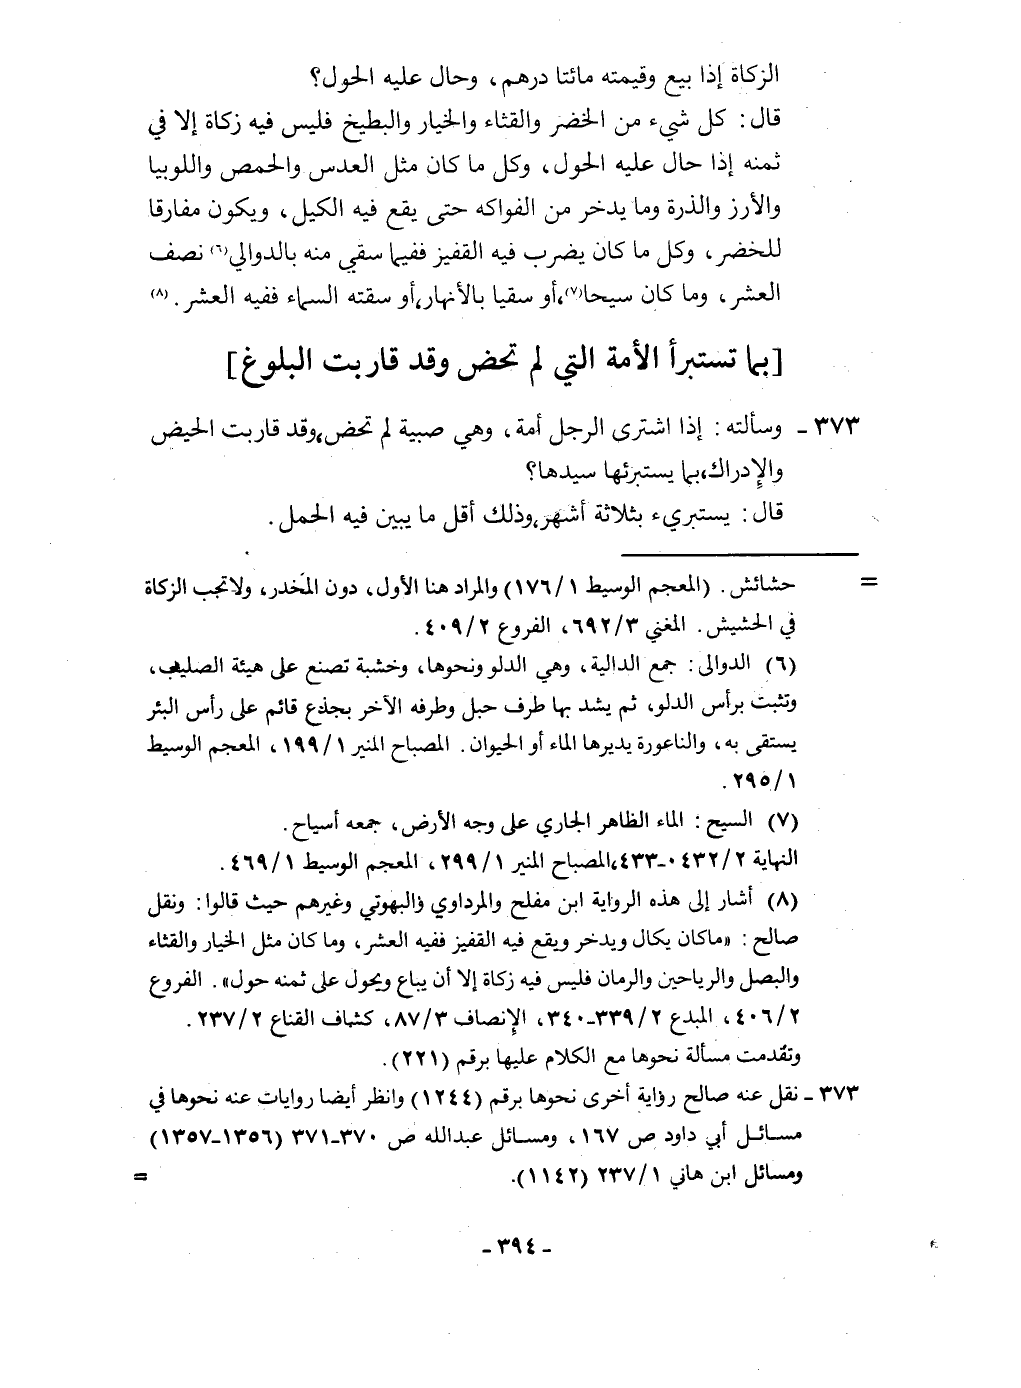 الزكاة إذا بيع وقيمته مائتا درهم، وحال عليه الحول؟
قال: كل شيء من الخضر والقثاء والخيار والبطيخ فليس فيه زكاة إلا في
ثمنه إذا حال عليه الحول، وكل ما كان مثل العدس والحمص واللوبيا
والأرز والذرة وما يدخر من الفواكه حتى يقع فيه الكيل، ويكون مفارقا
للخضر، وكل ما كان يضرب فيه القفيز ففيما سقي منه بالدوالي(٦) نصف
العشر، وما كان سيحا(٧)،أو سقيا بالأنهار،أو سقته السماء ففيه العشر.(٨)
[بما تستبرأ الأمة التي لم تحض وقد قاربت البلوغ]
٣٧٣ ـ وسألته: إذا اشترى الرجل أمة، وهي صبية لم تحض،وقد قاربت الحيض
والإدراك،بما يستبرئها سيدها؟
قال: يستبريء بثلاثة أشهر،وذلك أقل ما يبين فيه الحمل.
= حشائش. (المعجم الوسيط ١/١٧٦) والمراد هنا الأول، دون المخَدر، ولاتجب الزكاة
في الحشيش. المغني ٦٩٢/٣، الفروع ٤٠٩/٢.
(٦) الدوالى: جمع الدالية، وهي الدلو ونحوها، وخشبة تصنع على هيئة الصليب،
وتثبت برأس الدلو، ثم يشد بها طرف حبل وطرفه الآخر بجذع قائم على رأس البئر
يستقى به، والناعورة يديرها الماء أو الحيوان. المصباح المنير ١٩٩/١، المعجم الوسيط
٢٩٥/١.
(٧) السيح: الماء الظاهر الجاري على وجه الأرض، جمعه أسياح.
النهاية ٤٣٢/٢ـ٤٣٣،المصباح المنير ٢٩٩/١، المعجم الوسيط ٤٦٩/١.
(٨) أشار إلى هذه الرواية ابن مفلح والمرداوي والبهوتي وغيرهم حيث قالوا: ونقل
صالح: «ماكان يكال ويدخر ويقع فيه القفيز ففيه العشر، وما كان مثل الخيار والقثاء
والبصل والرياحين والرمان فليس فيه زكاة إلا أن يباع ويحول على ثمنه حول». الفروع
٤٠٦/٢، المبدع ٣٣٩/٢ـ٣٤٠، الإنصاف ٨٧/٣، كشاف القناع ٢٣٧/٢.
وتقدمت مسألة نحوها مع الكلام عليها برقم (٢٢١).
٣٧٣ ـ نقل عنه صالح رواية أخرى نحوها برقم (١٢٤٤) وانظر أيضا روايات عنه نحوها في
مسائل أبي داود ص ١٦٧، ومسائل عبدالله ص ٣٧٠ـ٣٧١ (١٣٥٦ـ١٣٥٧)
ومسائل ابن هاني ٢٣٧/١ (١١٤٢). =
ـ ٣٩٤ ـ